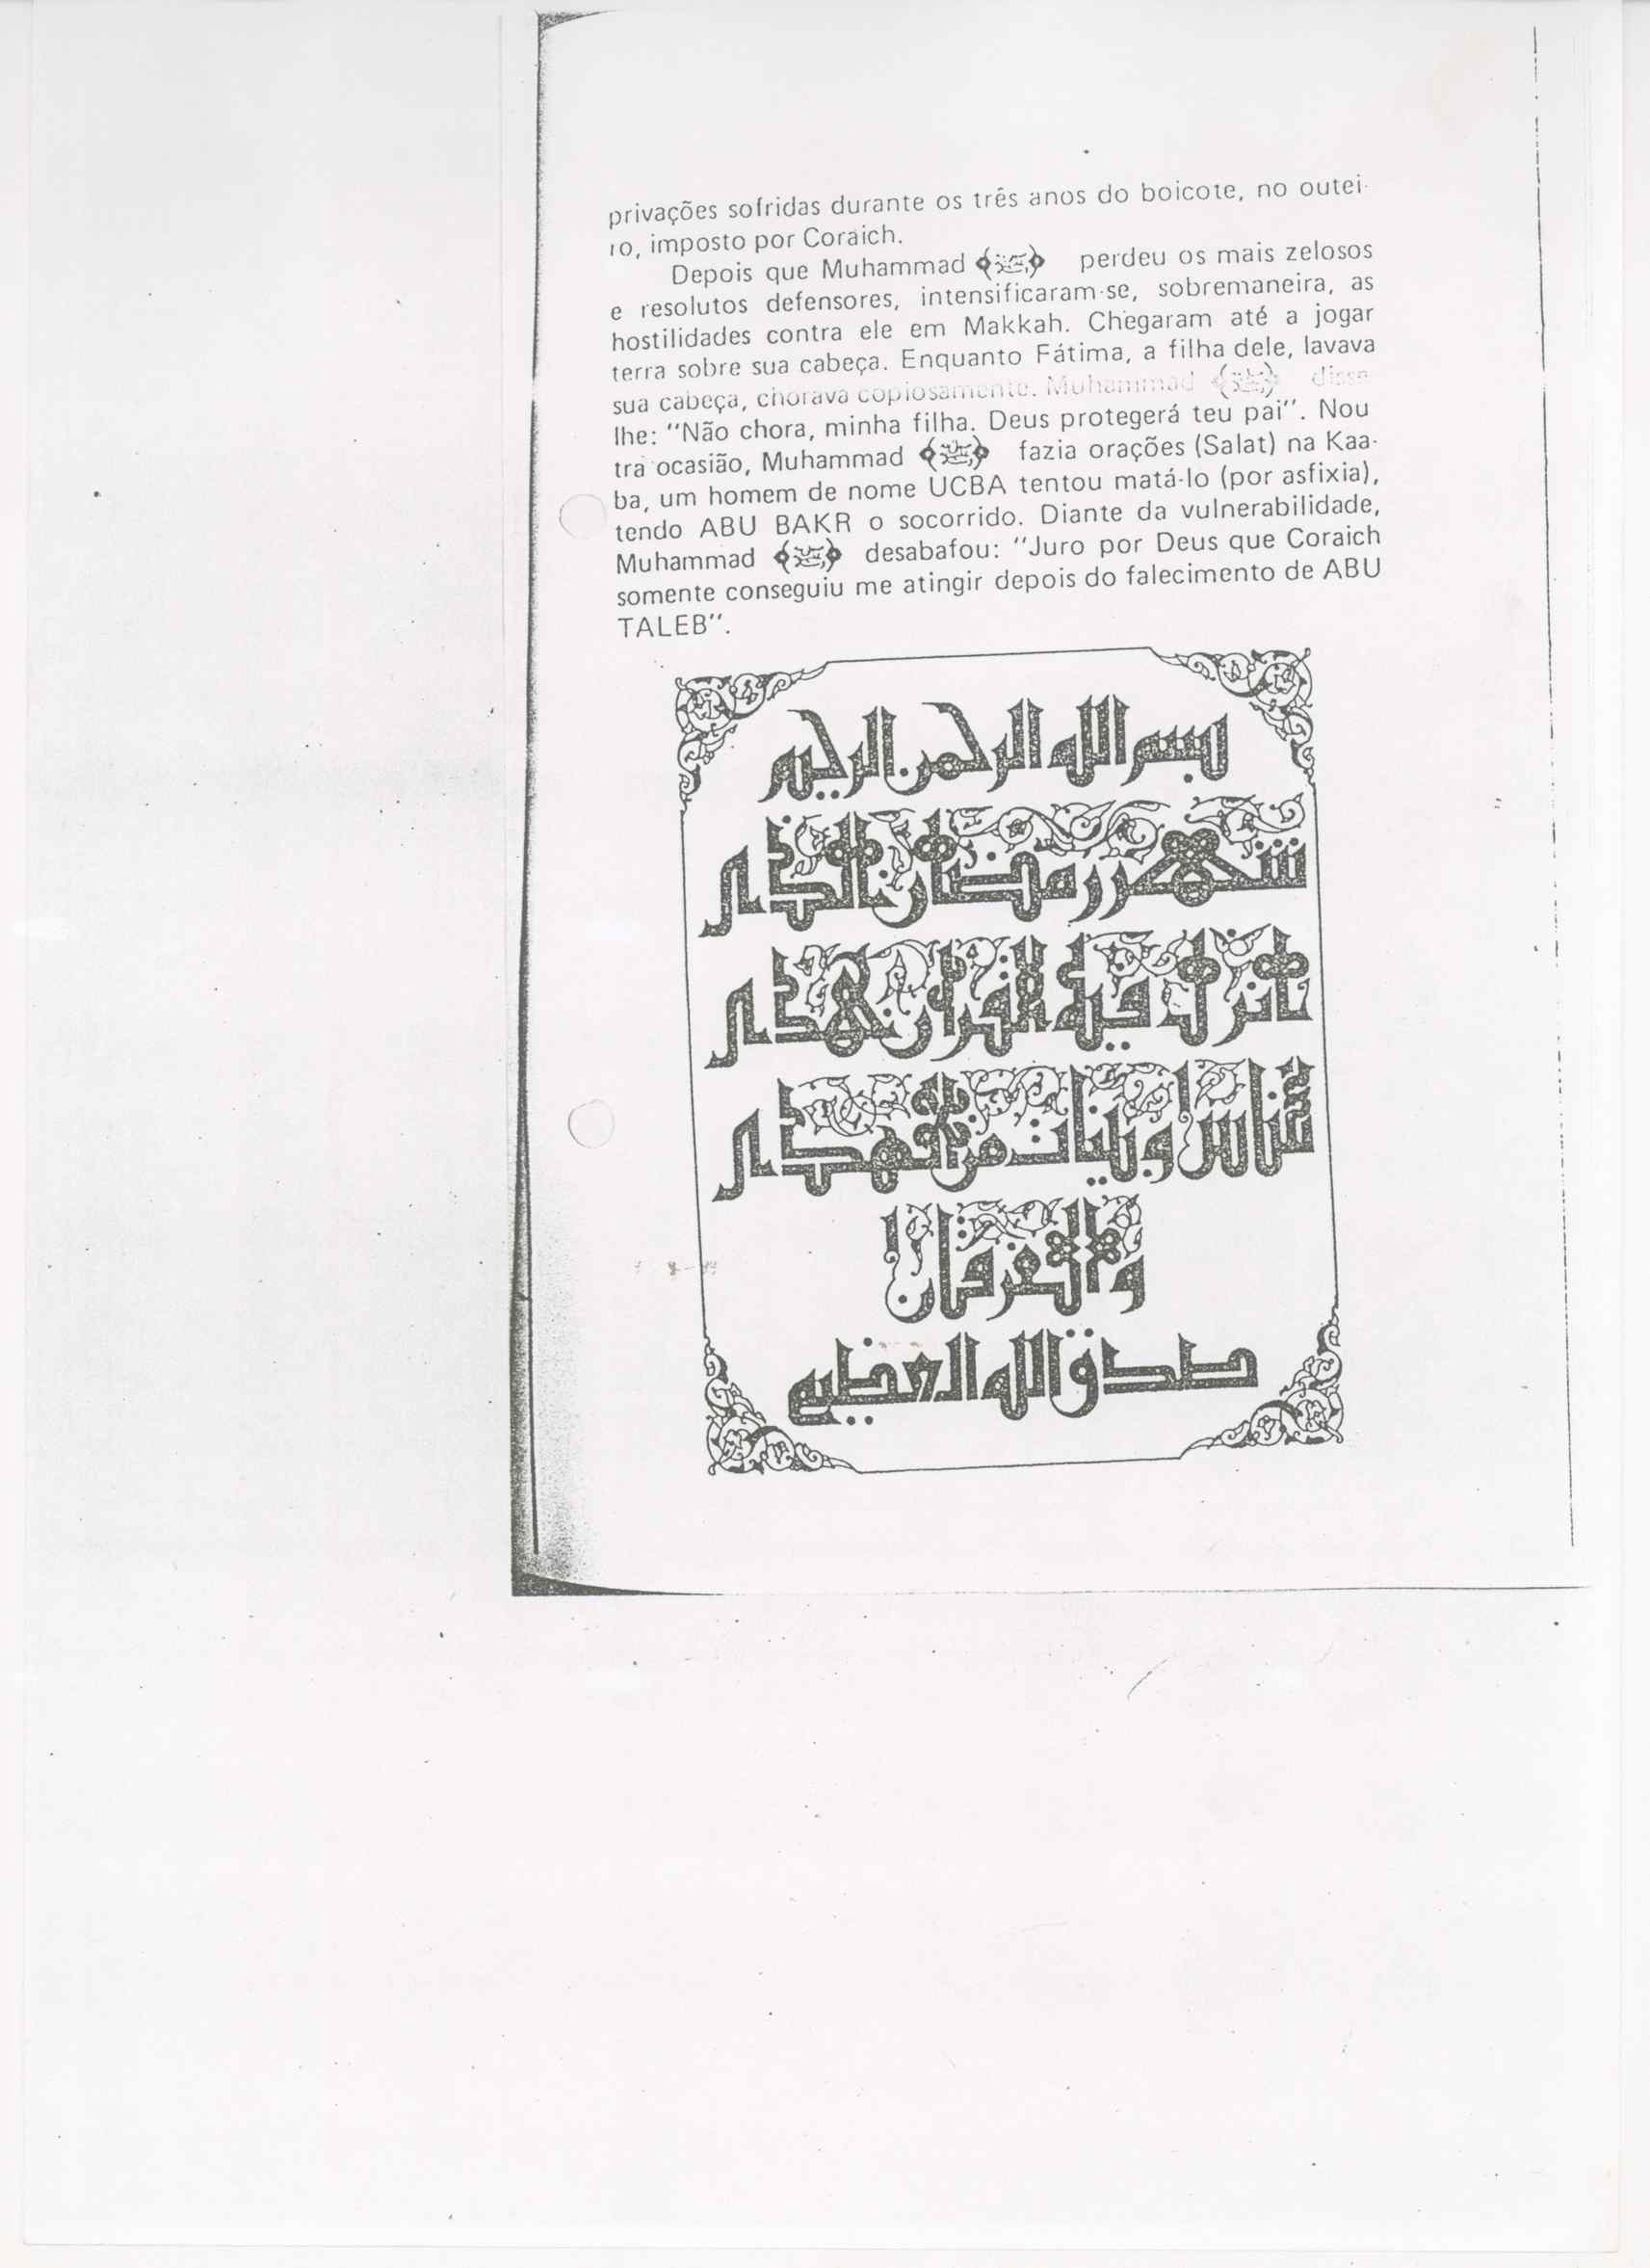 privações sofridas durante os três anos do boicote, no outei-
ro, imposto por Coraich.
Depois que Muhammad ﴿ﷺ﴾ perdeu os mais zelosos
e resolutos defensores, intensificaram-se, sobremaneira, as
hostilidades contra ele em Makkah. Chegaram até a jogar
terra sobre sua cabeça. Enquanto Fátima, a filha dele, lavava
sua cabeça, chorava copiosamente. Muhammad ﴿ﷺ﴾ disse-
lhe: "Não chora, minha filha. Deus protegerá teu pai". Nou
tra ocasião, Muhammad ﴿ﷺ﴾ fazia orações (Salat) na Kaa-
ba, um homem de nome UCBA tentou matá-lo (por asfixia),
tendo ABU BAKR o socorrido. Diante da vulnerabilidade,
Muhammad ﴿ﷺ﴾ desabafou: "Juro por Deus que Coraich
somente conseguiu me atingir depois do falecimento de ABU
TALEB".
بسم الله الرحمن الرحيم
شهر رمضان الذي
انزل فيه القران هدى
للناس وبينات من الهدى
والفرقان
صدق الله العظيم